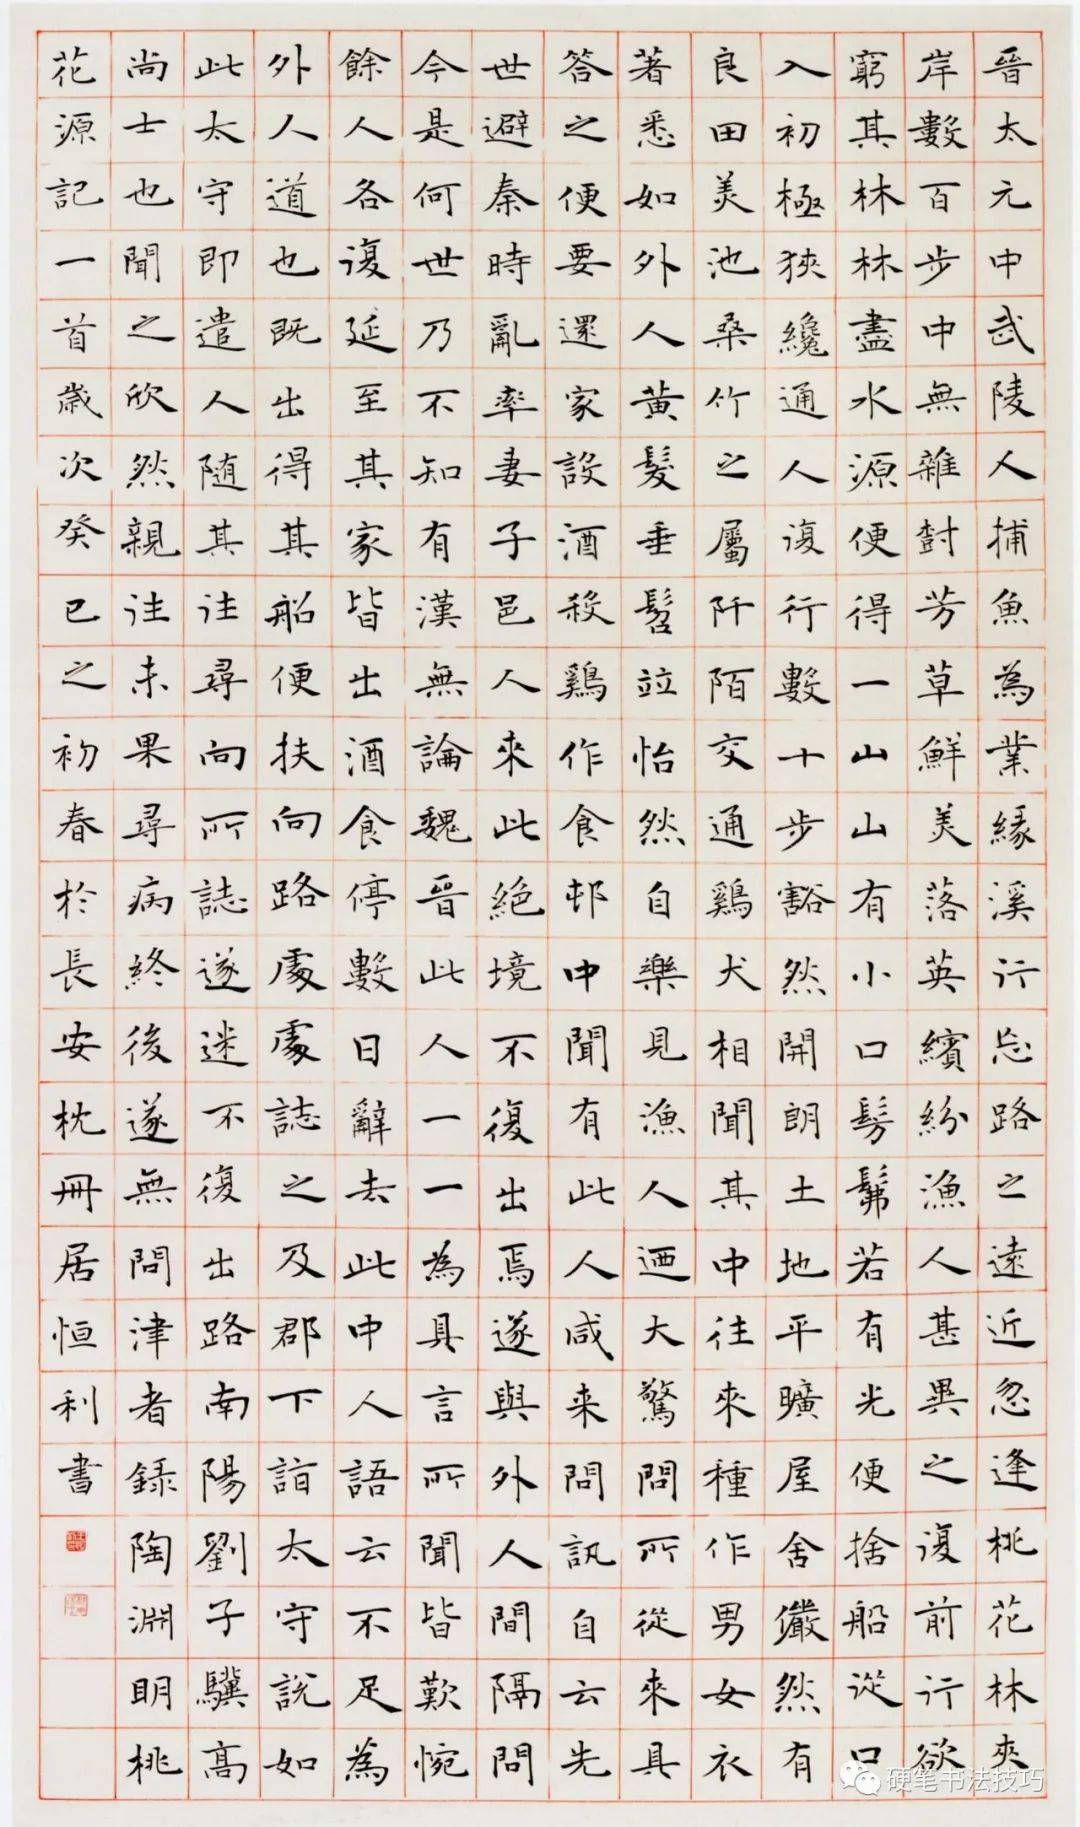 晉太元中武陵人捕魚為業緣溪行忘路之遠近忽逢桃花林夾
岸數百步中無雜樹芳草鮮美落英繽紛漁人甚異之復前行欲
窮其林林盡水源便得一山山有小口髣髴若有光便捨船從口
入初極狹纔通人復行數十步豁然開朗土地平曠屋舍儼然有
良田美池桑竹之屬阡陌交通鷄犬相聞其中往來種作男女衣
著悉如外人黃髮垂髫竝怡然自樂見漁人迺大驚問所從來具
答之便要還家設酒殺鷄作食邨中聞有此人咸来問訊自云先
世避秦時亂率妻子邑人來此絕境不復出焉遂與外人間隔問
今是何世乃不知有漢無論魏晉此人一一為具言所聞皆歎惋
餘人各復延至其家皆出酒食停數日辭去此中人語云不足為
外人道也既出得其船便扶向路處處誌之及郡下詣太守說如
此太守即遣人隨其往尋向所誌遂迷不復出路南陽劉子驥高
尚士也聞之欣然親往未果尋病終後遂無問津者錄陶淵明桃
花源記一首歲次癸巳之初春於長安枕冊居恒利書
硬笔书法技巧